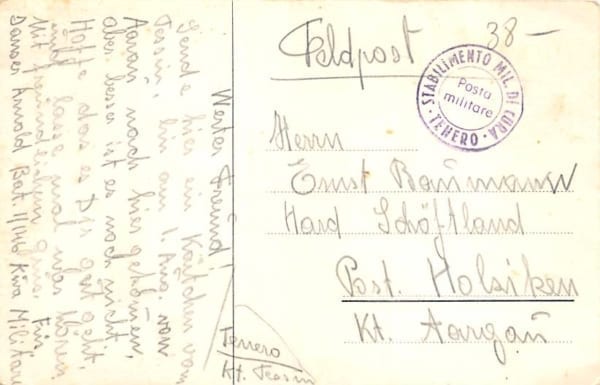 Feldpost
38-
STABILIMENTO MIL. DI CURA
Posta
militare
· TENERO ·
Herrn
Ernst Baumann
Hard Schöftland
Post. Holziken
Kt. Aargau
Werter Freund!
Sende hier ein Kärtchen vom
Tessin, bin am 1. Aug. von
Aarau nach hier gekommen,
Aber besser ist es noch nicht.
Hoffe das es Dir gut geht,
und lasse mal was hören
Mit freundlichem Gruss
Arnold Bat. Militare
Tenero
Kt. Tessin